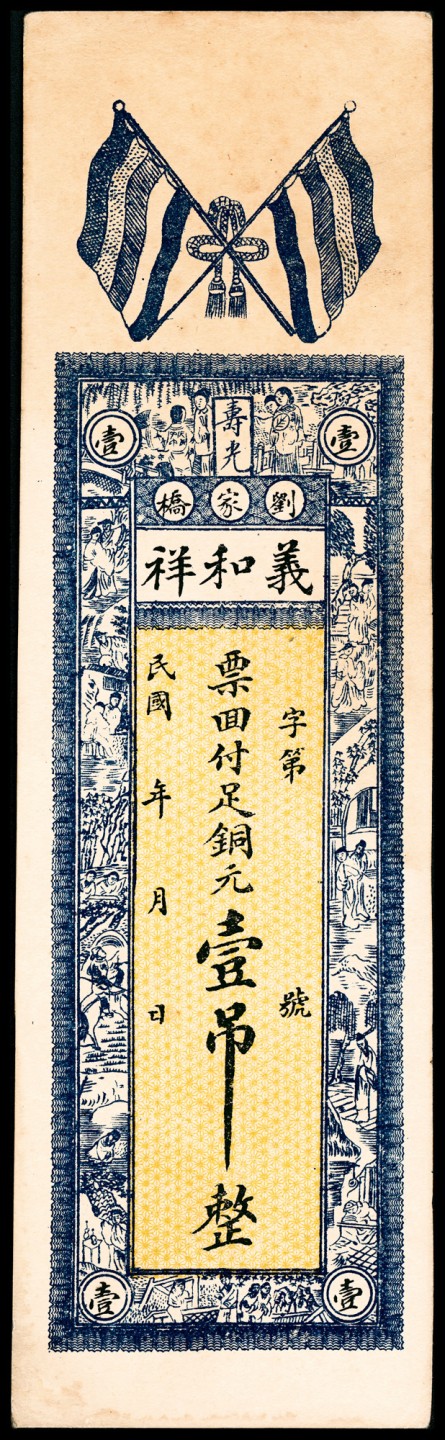 壹
壽光
壹
劉家橋
義和祥
字第 號
票面付足銅元壹吊整
民國 年 月 日
壹
壹